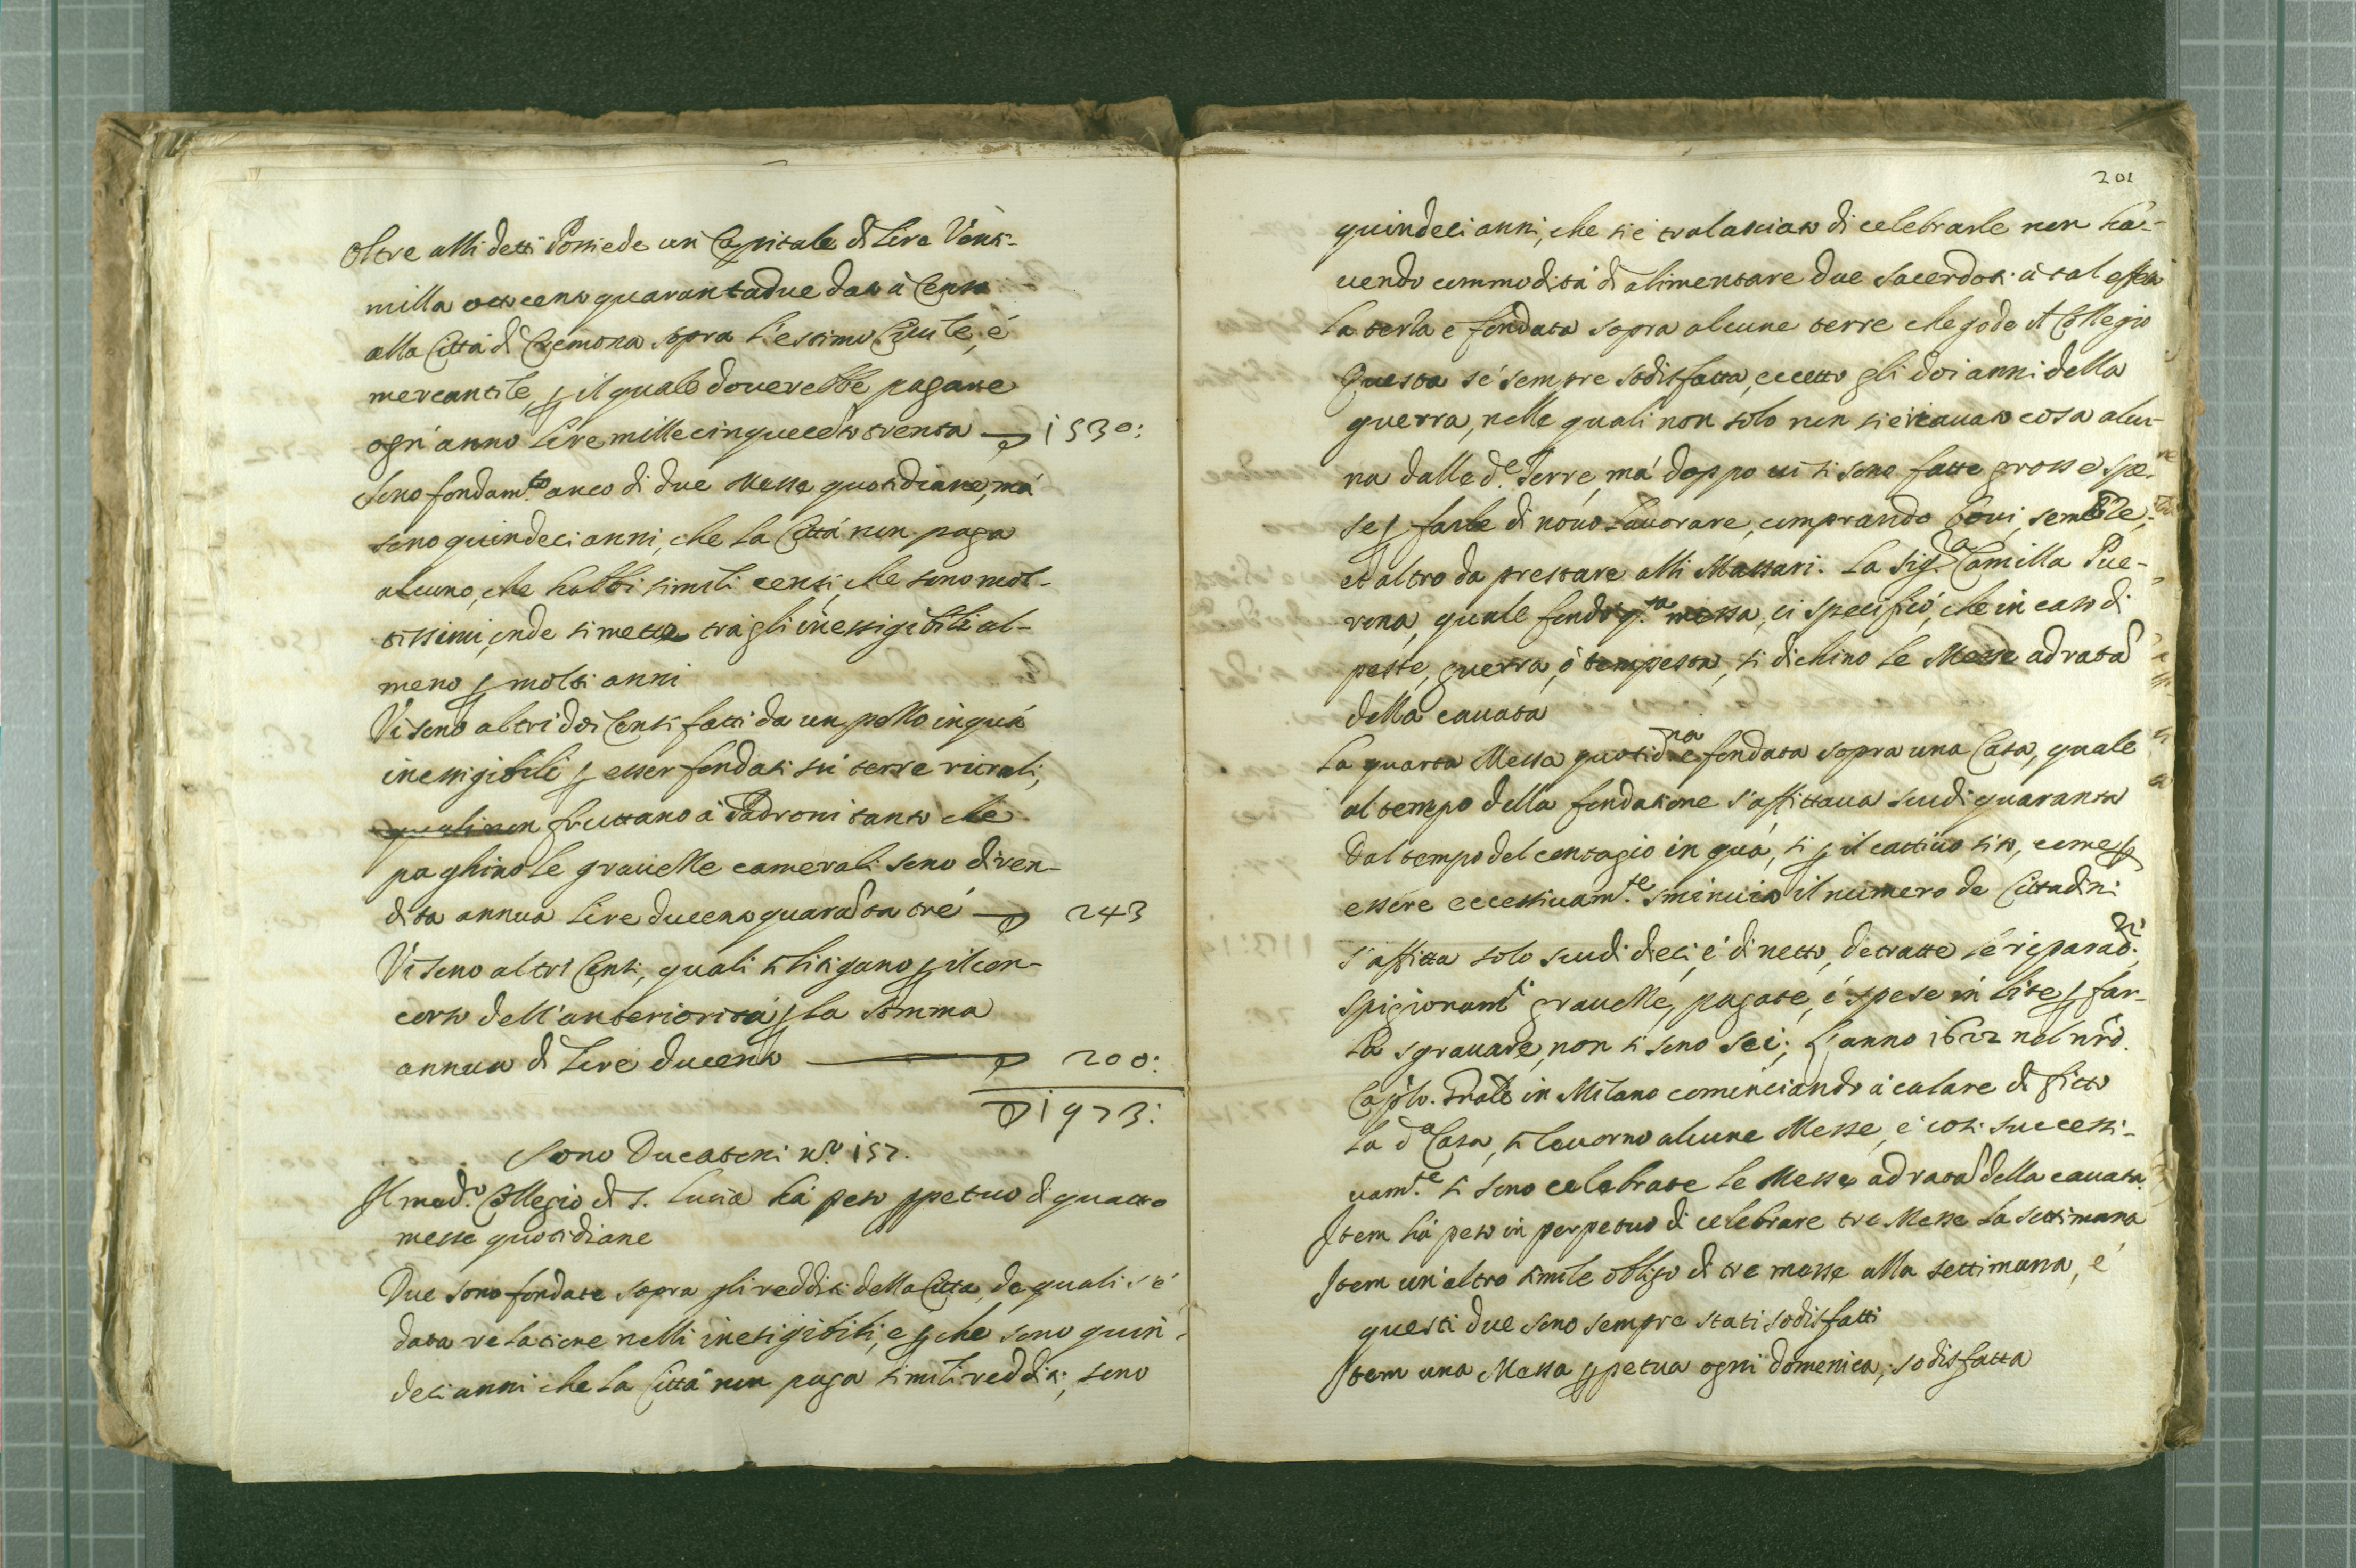 Oltre alli detti Possiede un Capitale di Lire Venti-
milla ottocento quarantadue dato à Censo
alla Città di Cremona sopra l'estimo Ciuile, é
mercantile, p il quale douerebbe pagare
ogn'anno Lire mille cinquecēto trenta 1530:
Sono fondam.to anco di due Messe quotidiane, má
sono quindeci anni, che la Città non paga
alcuno, che habbi simili censi, che sono mol-
tissimi, onde si mette trà gli inessigibili al-
meno p molti anni
Vi sono altri doi Censi fatti da un pezzo in quà
inessigibili p esser fondati sú terre rurali,
quali non fruttano à Padroni tanto che
paghino le grauezze camerali sono di ren-
dita annua Lire ducento quarāta tré 243
Vi sono altri Censi, quali si litigano p il con-
corso dell'anteriorità p la somma
annua di Lire ducento 200:
1973:
Sono Ducatoni n.o 157.
Il med.o Collegio di S. Lucia há peso ppetuo di quattro
messe quotidiane
Due sono fondate sopra gli redditi della Città, de quali s'é
data relatione nelli inesigibili, e p che sono quin-
deci anni che la Città non paga simili redditi, sono
201
quindeci anni, che si é tralasciato di celebrarle non ha-
uendo commodità di alimentare due Sacerdoti à tal effetto
La terza e fondata sopra alcune terre che gode il Collegio
Questa s'é sempre sodisfatta, eccetto gli doi anni della
guerra, nelle quali non solo non si é cauato cosa alcu-
na dalle d.e Terre, má doppo ui si sono fatte grosse spe-
se p farle di nouo Lauorare, comprando Boui, semēte,
et altro da prestare alli Massari. La Sig.ra Camilla Pue-
rona, quale fondò q.ta messa, ci specificó, che in caso di
peste, guerra, ó tempesta, si dichino le Messe ad ratā
della cauata
La quarta Messa quotid.na e fondata sopra una Casa, quale
al tempo della fondatione s'affittaua scudi quaranta
Dal tempo del contagio in quá, si p il cattiuo sito, come p
essere eccessiuam.te sminuito il numero de Cittadini
s'affitta solo scudi dieci, é di netto, detratte le riparaō.ni,
spigionam.ti grauezze, pagate, é spese in lite p far-
la sgrauare, non si sono sei; L'anno 1622 nel nr̄o
Cap̄lo. Prāle in Milano cominciando à calare di fitto
la d.a Casa, si leuorno alcune Messe, é cosi successi-
uam.te si sono celebrate le Messe ad ratā della cauata
Item há peso in perpetuo di celebrare tre Messe la settimana
Item un'altro simile obligo di tre messe alla settimana, é
questi due sono sempre stati sodisfatti
Item una Messa ppetua ogni domenica, sodisfatta